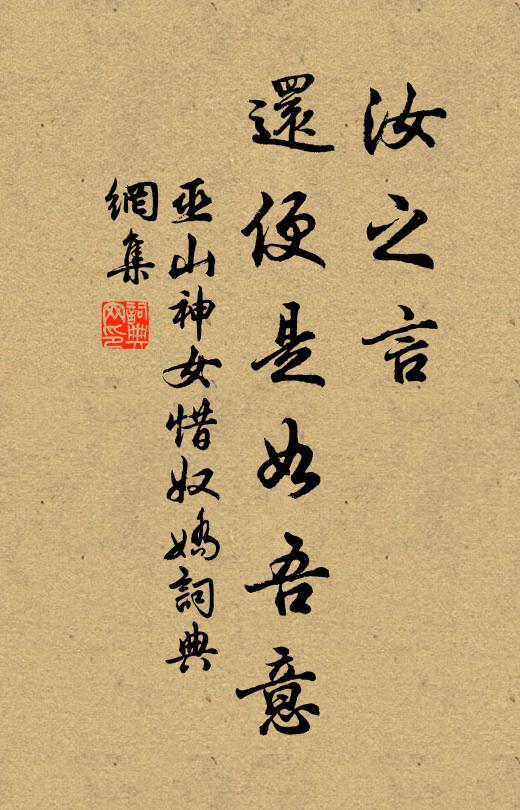 汝之言
還便是如吾意
巫山神女惜奴嬌詞典
網集
詞典
网印